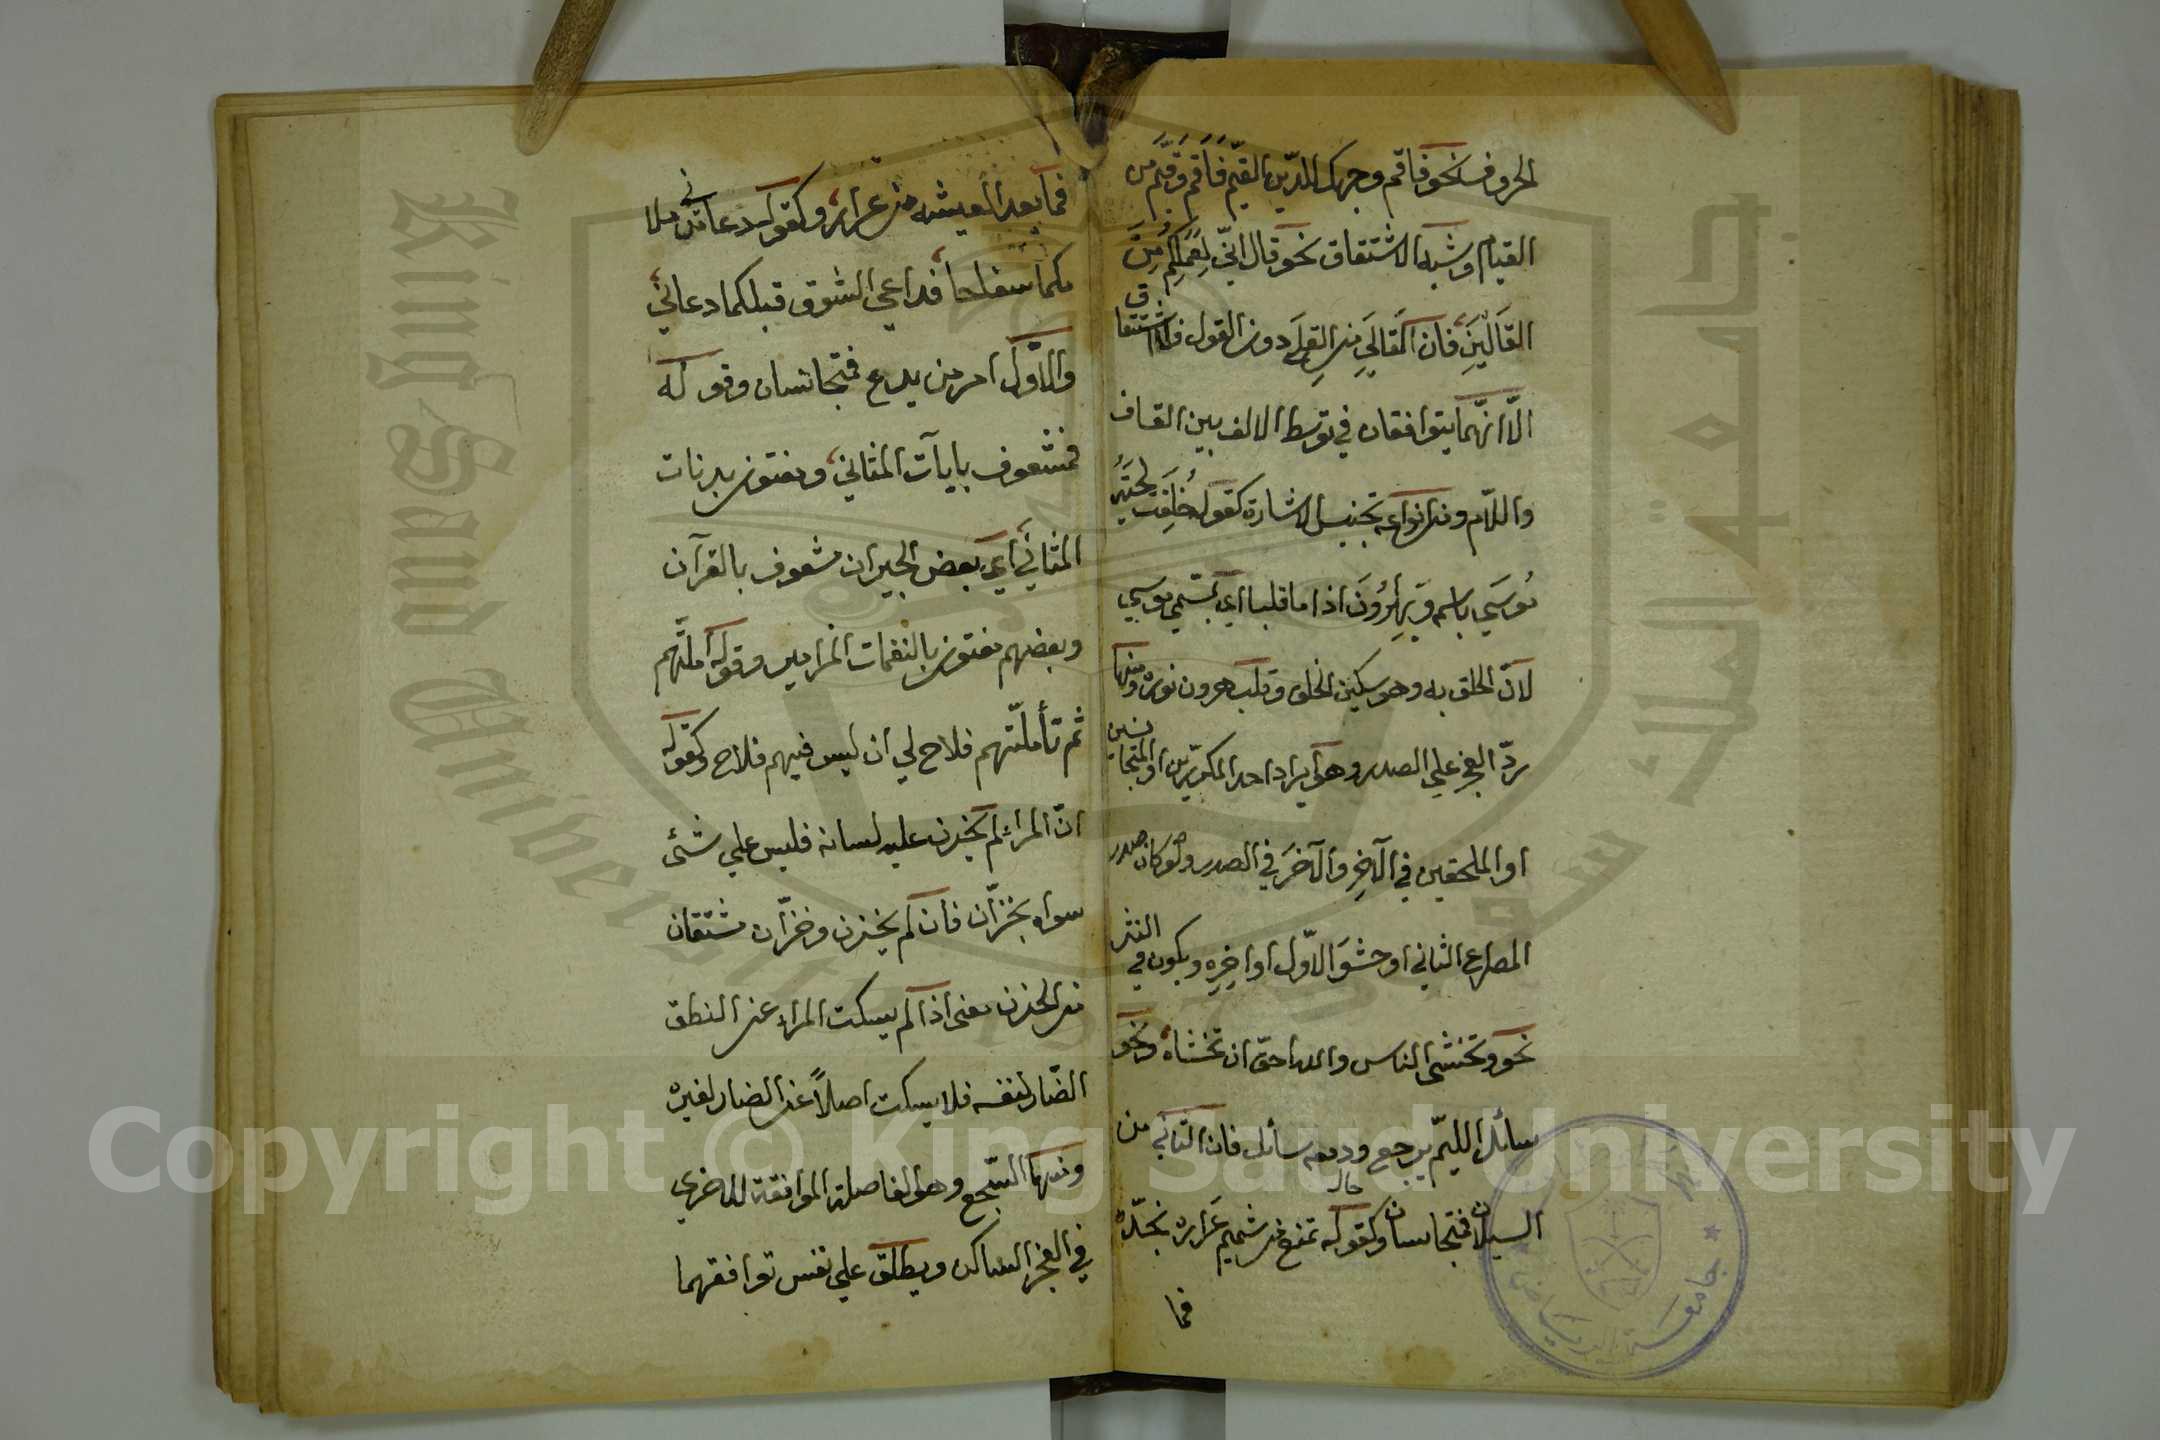 الحروف نحو فاقم وجهك للدّين القيّم فَاَقِم وَقَيِّم من
القيام وشبه الاشتقاق نحو قال انّي لِعَمَلِكُم مِنَ
القَالِّينَ فان القالي من القِلَى دون القول فالاشتقاق
الّا انّهما يتوافقان في توسط الالف بين القاف
واللّام ومن انواعه تجنيس الاشارة كقوله خُلِقَت لحيَةُ
مُوسَي باسمه وَبِهٰرُونَ اذا ما قلبا اي بمسّمي موسي
لانّ الحلق به وهو سكين الحلق وقلب هرون نوره ومنها
ردّ العجز علي الصدر وهو ايراد احد المكررّين او المتجانسين
او الملحقين في الآخِر والآخَر في الصدر ولو كان صدر
المصراع الثاني او حشوَ الاوّل او اخِرِه ويكون في النثر
نحو وتخشى الناس والله احق ان تخشاه ونحو
سائل اللئيم يرجع ودمعه سائل فان الثاني من
السيلان فيتجانسان وكقوله تمتع من شميم عَرَار نجد
فما
فما بعد العشية من عرار وكقوله دعاني من ملا
مكما سفاها فداعي الشوق قبلكما دعاني
والاوّل امر من يدع فيتجانسان وقوله
فمشعوف بايآت المثاني ومفتون برنات
المثاني اي بعض الجيران مشعوف بالقرآن
وبعضهم مفتون بالنغمات المزامير وقوله املتهم
ثم تأملّتهم فلاح لي ان ليس فيهم فلاح وكقوله
انّ المرا لم يخزن عليه لسانه فليس علي شئ
سواه بخزّان فان لم يخزن وخزّان مشتقان
من الخزن معنى اذا لم يسكت المراء عن النطق
الضّار لنفسه فلا يسكت اصلاً عن الضار لغيره
ومنها السّجع وهو الفاصلة الموافقة للاخري
في العجز الساكن ويطلق علي نفس توافقهما
جامعة الرياض
King Saud University
جامعة الملك سعود
Copyright © King Saud University